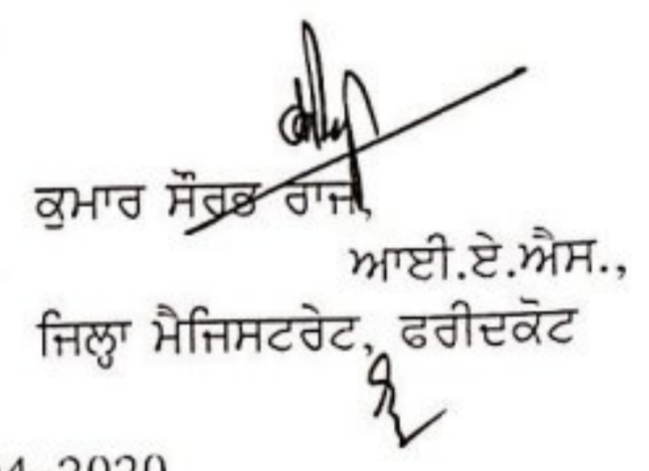 ਕੁਮਾਰ ਸੌਰਭ ਰਾਜ,
ਆਈ.ਏ.ਐਸ.,
ਜਿਲ੍ਹਾ ਮੈਜਿਸਟਰੇਟ, ਫਰੀਦਕੋਟ
-2020